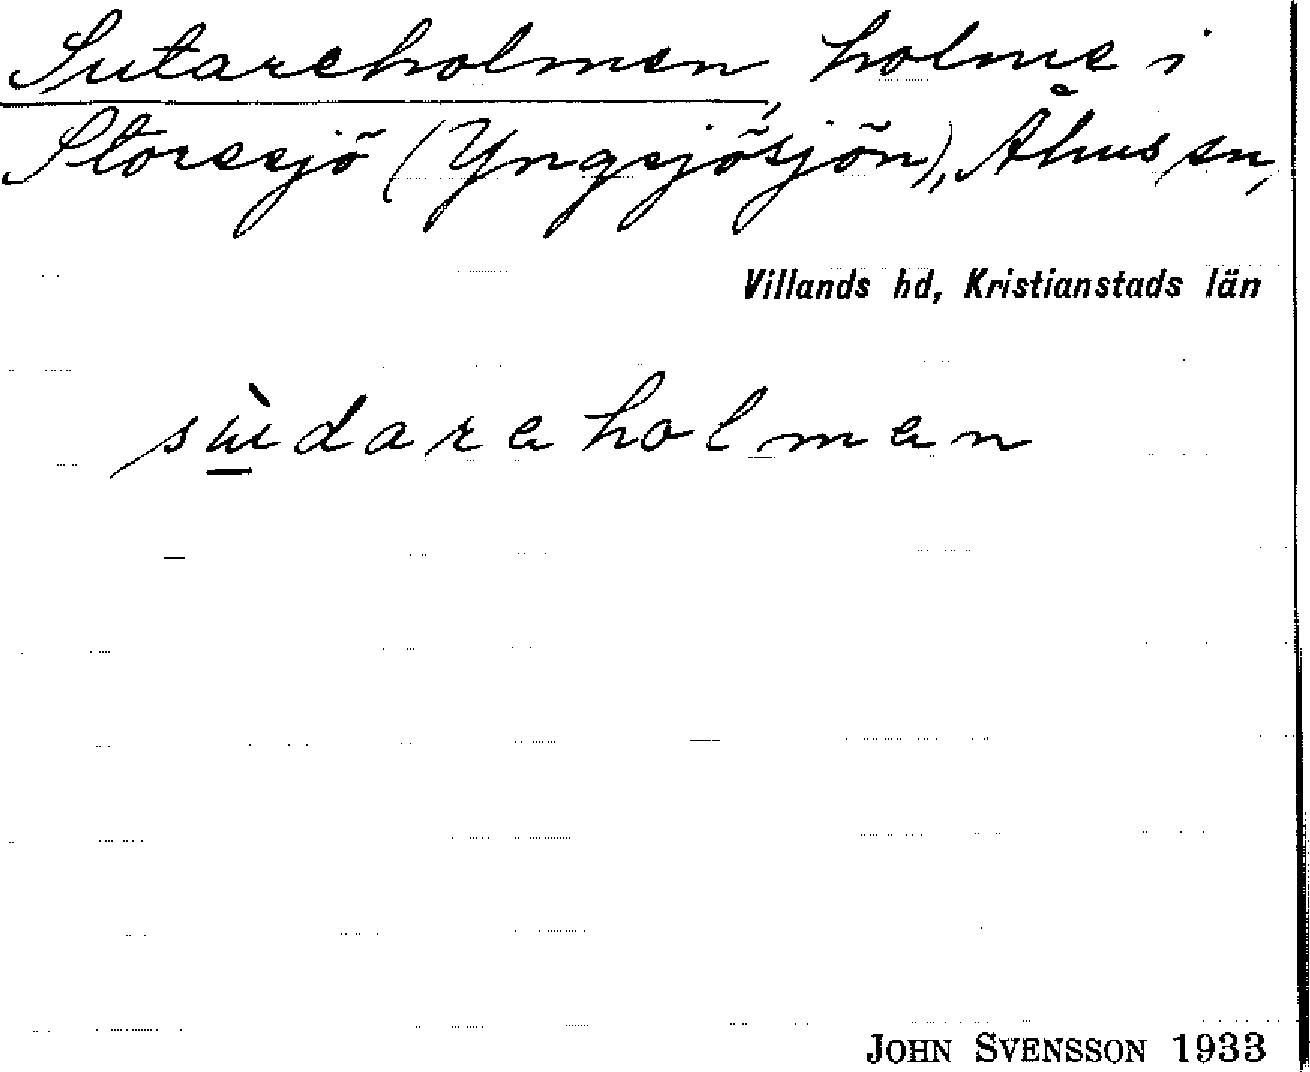 Sutareholmen, holme i
Storesjö (Yngsjösjön), Åhus sn,
Villands hd, Kristianstads län
sùdareholmen
JOHN SVENSSON 1933